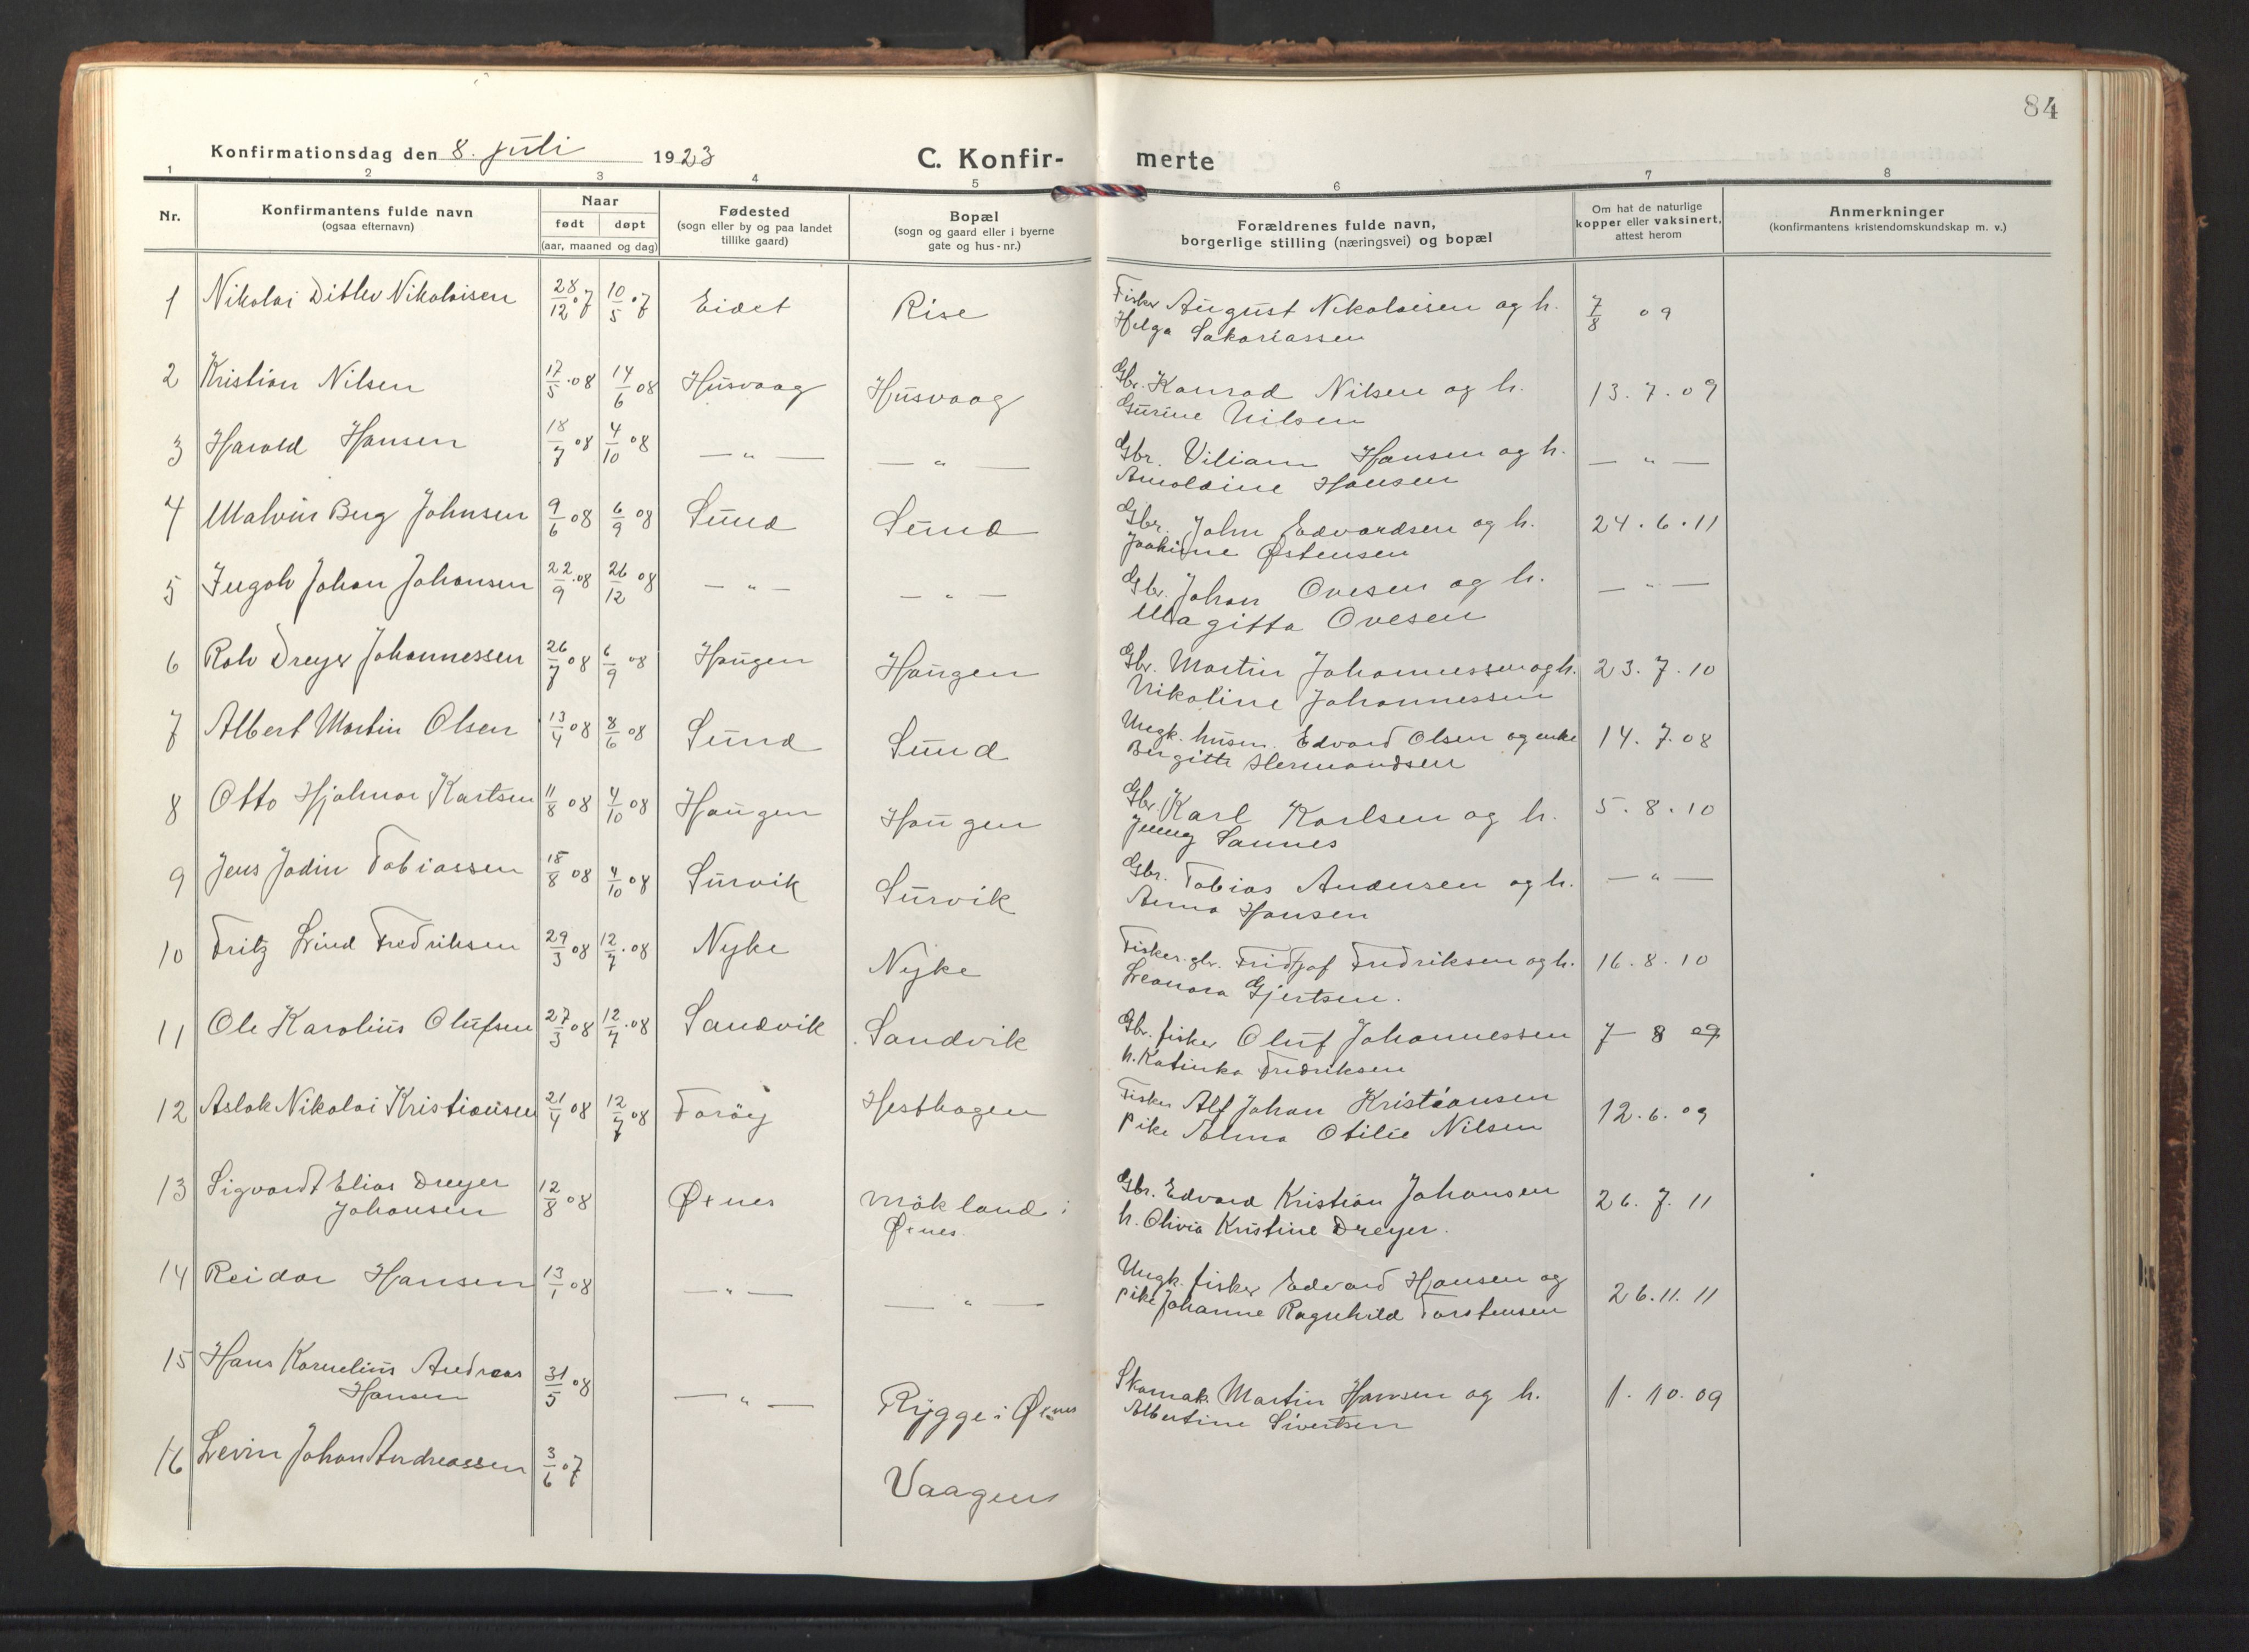 84
Konfirmationsdag den 8. juli 1923
C. Konfir-
merte
1 2 3 4 5 6 7 8
Nr.
Konfirmantens fulde navn
(ogsaa efternavn)
Naar
født døpt
(aar, maaned og dag)
Fødested
(sogn eller by og paa landet
tillike gaard)
Bopæl
(sogn og gaard eller i byerne
gate og hus-nr.)
Forældrenes fulde navn,
borgerlige stilling (næringsvei) og bopæl
Om hat de naturlige
kopper eller vaksinert,
attest herom
Anmerkninger
(konfirmantens kristendomskundskap m. v.)
1 Nikolai Ditlev Nikolaisen 28/12 07 10/5 07 Eidet Rise Fisker August Nikolaisen og h. 7/8 09
Helga Sakariassen
2 Kristian Nilsen 17/5 08 14/6 08 Husvaag Husvaag Gbr. Konrad Nilsen og h. 13.7.09
Gurine Nilsen
3 Harald Hansen 18/7 08 4/10 08 — " — — " — Gbr. Viliam Hansen og h. — " —
Arnoldine Hansen
4 Malvin Berg Johnsen 9/6 08 6/9 08 Sund Sund Gbr. John Edvardsen og h. 24.6.11
Joakime Østensen
5 Johan Johansen 22/9 08 26/12 08 — " — — " — Gbr. Johan Ovesen og h. — " —
Magitta Ovesen
6 Rolv Dreyer Johannessen 26/7 08 6/9 08 Haugen Haugen Gbr. Martin Johannessen og h. 23.7.10
Nikoline Johannessen
7 Albert Martin Olsen 13/4 08 8/6 08 Sund Sund Ungk. husm. Edvard Olsen og enke 14.7.08
Bergitte Hermandsen
8 Otto Hjalmar Karlsen 11/8 08 4/10 08 Haugen Haugen Gbr. Karl Karlsen og h. 5.8.10
Jenny Sannes
9 Jens Jodin Tobiassen 15/8 08 4/10 08 Survik Survik Gbr. Tobias Andersen og h. — " —
Anna Hansen
10 Fritz Lind Fredriksen 29/3 08 12/7 08 Nyke Nyke Fisker. gbr. Fridtjof Fredriksen og h. 16.8.10
Leonora Gjertsen.
11 Ole Karolius Olufsen 27/3 08 12/7 08 Sandvik Sandvik Gbr. fisker Oluf Johannessen 7-8 09
h. Katinka Fredriksen
12 Aslak Nikolai Kristiansen 21/4 08 12/7 08 Farøy Hesthagen Fisker Alf Johan Kristiansen 12.6.09
pike Alma Otilie Nilsen
13 Sigvardt Elias Dreyer 12/8 08 Øxnes Mökland i Gbr. Edvard Kristian Johansen 26.7.11
Johansen Øxnes. h. Olivia Kristine Dreyer.
14 Reidar Hansen 13/1 08 — " — — " — Ungk. fisker Edvard Hansen og 26.11.11
pike Johanne Ragnhild Torstensen
15 Hans Kornelius Andreas 31/5 08 — " — Rygge i Øxnes Skomak. Martin Hansen og h. 1.10.09
Hansen Albertine Sivertsen
16 Levin Johan Andreassen 3/6 07 Vaagen